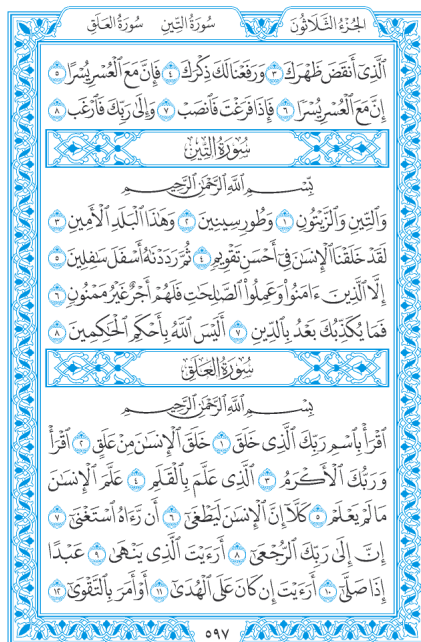 الجُزْءُ الثَّلَاثُونَ سُورَةُ التِّينِ سُورَةُ العَلَقِ
ٱلَّذِىٓ أَنقَضَ ظَهْرَكَ ٣ وَرَفَعْنَا لَكَ ذِكْرَكَ ٤ فَإِنَّ مَعَ ٱلْعُسْرِ يُسْرًا ٥
إِنَّ مَعَ ٱلْعُسْرِ يُسْرًا ٦ فَإِذَا فَرَغْتَ فَٱنصَبْ ٧ وَإِلَىٰ رَبِّكَ فَٱرْغَب ٨
سُورَةُ التِّينِ
بِسْمِ ٱللَّهِ ٱلرَّحْمَٰنِ ٱلرَّحِيمِ
وَٱلتِّينِ وَٱلزَّيْتُونِ ١ وَطُورِ سِينِينَ ٢ وَهَٰذَا ٱلْبَلَدِ ٱلْأَمِينِ ٣
لَقَدْ خَلَقْنَا ٱلْإِنسَٰنَ فِىٓ أَحْسَنِ تَقْوِيمٍ ٤ ثُمَّ رَدَدْنَٰهُ أَسْفَلَ سَٰفِلِينَ ٥
إِلَّا ٱلَّذِينَ ءَامَنُوا۟ وَعَمِلُوا۟ ٱلصَّٰلِحَٰتِ فَلَهُمْ أَجْرٌ غَيْرُ مَمْنُونٍ ٦
فَمَا يُكَذِّبُكَ بَعْدُ بِٱلدِّينِ ٧ أَلَيْسَ ٱللَّهُ بِأَحْكَمِ ٱلْحَٰكِمِينَ ٨
سُورَةُ العَلَقِ
بِسْمِ ٱللَّهِ ٱلرَّحْمَٰنِ ٱلرَّحِيمِ
ٱقْرَأْ بِٱسْمِ رَبِّكَ ٱلَّذِى خَلَقَ ١ خَلَقَ ٱلْإِنسَٰنَ مِنْ عَلَقٍ ٢ ٱقْرَأْ
وَرَبُّكَ ٱلْأَكْرَمُ ٣ ٱلَّذِى عَلَّمَ بِٱلْقَلَمِ ٤ عَلَّمَ ٱلْإِنسَٰنَ
مَا لَمْ يَعْلَمْ ٥ كَلَّآ إِنَّ ٱلْإِنسَٰنَ لَيَطْغَىٰٓ ٦ أَن رَّءَاهُ ٱسْتَغْنَىٰٓ ٧
إِنَّ إِلَىٰ رَبِّكَ ٱلرُّجْعَىٰٓ ٨ أَرَءَيْتَ ٱلَّذِى يَنْهَىٰ ٩ عَبْدًا
إِذَا صَلَّىٰٓ ١٠ أَرَءَيْتَ إِن كَانَ عَلَى ٱلْهُدَىٰٓ ١١ أَوْ أَمَرَ بِٱلتَّقْوَىٰٓ ١٢
٥٩٧